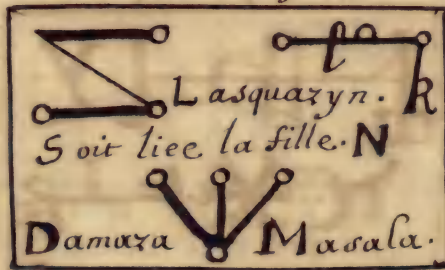 Lasquazyn.
Soit liee la fille. N
Damaza Masala.